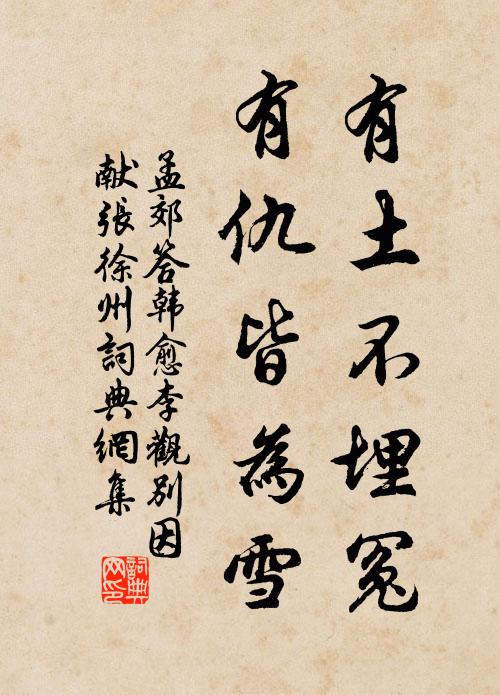 有土不埋冤
有仇皆為雪
孟郊答韩愈李觀别因
献張徐州詞典網集
詞典网印